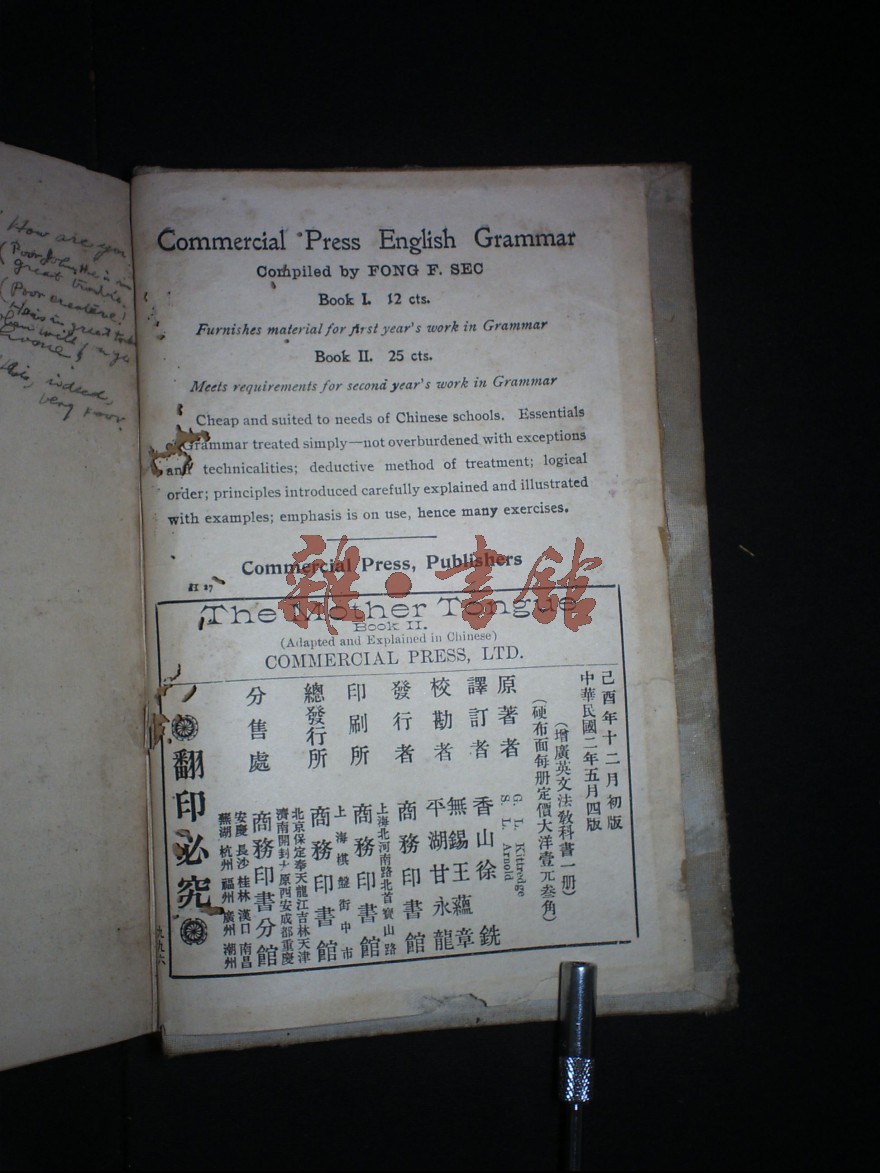 How are you
(Poor John, He is in
great trouble.
(Poor creature!
He is in great
indeed,
very poor.
Commercial Press English Grammar
Compiled by FONG F. SEC
Book I. 12 cts.
Furnishes material for first year's work in Grammar
Book II. 25 cts.
Meets requirements for second year's work in Grammar
Cheap and suited to needs of Chinese schools. Essentials
Grammar treated simply—not overburdened with exceptions
and technicalities; deductive method of treatment; logical
order; principles introduced carefully explained and illustrated
with examples; emphasis is on use, hence many exercises.
Commercial Press, Publishers
雜·書館
H 17
The Mother Tongue
Book II.
(Adapted and Explained in Chinese)
COMMERCIAL PRESS, LTD.
己酉年十二月初版
中華民國二年五月四版
(增廣英文法敎科書一册)
(硬布面每册定價大洋壹元叁角)
原著者 G. L. Kittredge
S. L. Arnold
譯訂者 香山徐銑
校勘者 無錫王蘊章
平湖甘永龍
發行者 商務印書館
印刷所 上海北河南路北首寶山路
商務印書館
總發行所 上海棋盤街中市
商務印書館
分售處 北京保定奉天龍江吉林天津
濟南開封太原西安成都重慶
商務印書分館
安慶長沙桂林漢口南昌
蕪湖杭州福州廣州潮州
翻印必究